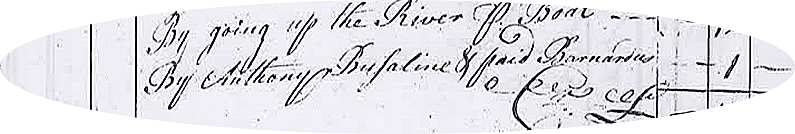 By going up the River P. Boat
By Anthony Busaline & paid Barnardus 1